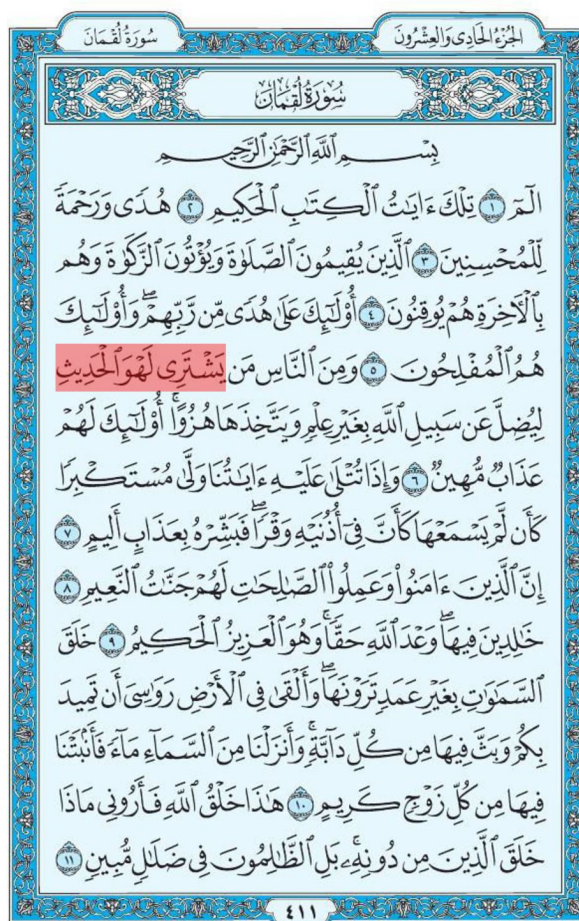 الجُزْءُ الحَادِي وَالعِشْرُونَ
سُورَةُ لُقْمَانَ
سُورَةُ لُقْمَانَ
بِسْمِ ٱللَّهِ ٱلرَّحْمَٰنِ ٱلرَّحِيمِ
الٓمٓ ١ تِلْكَ ءَايَٰتُ ٱلْكِتَٰبِ ٱلْحَكِيمِ ٢ هُدًى وَرَحْمَةً
لِّلْمُحْسِنِينَ ٣ ٱلَّذِينَ يُقِيمُونَ ٱلصَّلَوٰةَ وَيُؤْتُونَ ٱلزَّكَوٰةَ وَهُم
بِٱلْأَخِرَةِ هُمْ يُوقِنُونَ ٤ أُوْلَٰٓئِكَ عَلَىٰ هُدًى مِّن رَّبِّهِمْۖ وَأُوْلَٰٓئِكَ
هُمُ ٱلْمُفْلِحُونَ ٥ وَمِنَ ٱلنَّاسِ مَن يَشْتَرِى لَهْوَ ٱلْحَدِيثِ
لِيُضِلَّ عَن سَبِيلِ ٱللَّهِ بِغَيْرِ عِلْمٍ وَيَتَّخِذَهَا هُزُوًاۚ أُوْلَٰٓئِكَ لَهُمْ
عَذَابٌ مُّهِينٌ ٦ وَإِذَا تُتْلَىٰ عَلَيْهِ ءَايَٰتُنَا وَلَّىٰ مُسْتَكْبِرًا
كَأَن لَّمْ يَسْمَعْهَا كَأَنَّ فِىٓ أُذُنَيْهِ وَقْرًاۖ فَبَشِّرْهُ بِعَذَابٍ أَلِيمٍ ٧
إِنَّ ٱلَّذِينَ ءَامَنُواْ وَعَمِلُواْ ٱلصَّٰلِحَٰتِ لَهُمْ جَنَّٰتُ ٱلنَّعِيمِ ٨
خَٰلِدِينَ فِيهَاۖ وَعْدَ ٱللَّهِ حَقًّاۚ وَهُوَ ٱلْعَزِيزُ ٱلْحَكِيمُ ٩ خَلَقَ
ٱلسَّمَٰوَٰتِ بِغَيْرِ عَمَدٍ تَرَوْنَهَاۖ وَأَلْقَىٰ فِى ٱلْأَرْضِ رَوَٰسِىَ أَن تَمِيدَ
بِكُمْ وَبَثَّ فِيهَا مِن كُلِّ دَآبَّةٍۚ وَأَنزَلْنَا مِنَ ٱلسَّمَآءِ مَآءً فَأَنۢبَتْنَا
فِيهَا مِن كُلِّ زَوْجٍ كَرِيمٍ ١٠ هَٰذَا خَلْقُ ٱللَّهِ فَأَرُونِى مَاذَا
خَلَقَ ٱلَّذِينَ مِن دُونِهِۦۚ بَلِ ٱلظَّٰلِمُونَ فِى ضَلَٰلٍ مُّبِينٍ ١١
٤١١